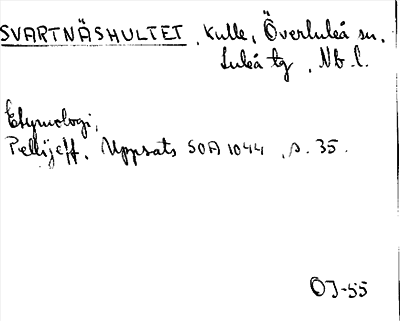 SVARTNÄSHULTET, Kulle, Överluleå sn,
Luleå tg, Nb. l.
Etymologi,
Pellijeff, Uppsats SOA 1044, s. 35.
OJ-55